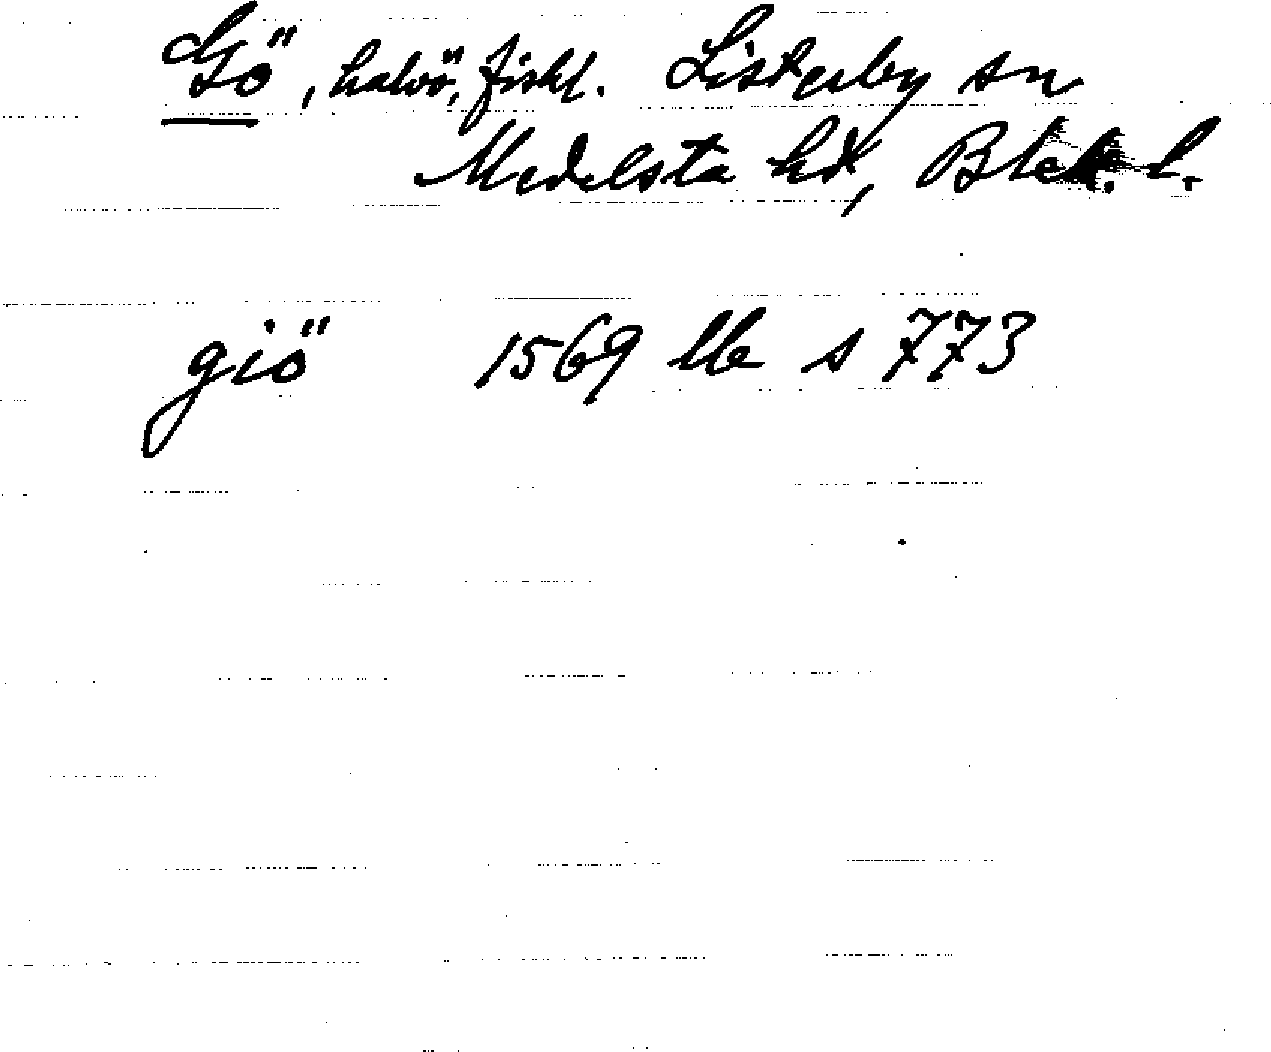 Gö, halvö, fiskl. Listerby sn
Medelsta hd, Blek. l.
giö 1569 llb s 773